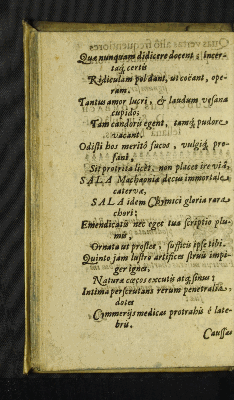 Quæ nunquam didicere docent; incer-
taq́; certis
Ridiculum poldant, ut cocant, ope-
ram.
Tantus amor lucri, & laudum vesana
cupido;
Tam candoris egent, tamq́; pudore
vacant.
Odisti hos meritò fucos, vulgiq́; pro-
fani.
Sit protrita licèt, non placet ire viâ,
SALA Machaonia decus immortale
catervæ,
SALA idem Chymici gloria rara
chori;
Emendicatis nec eget tua scriptio plu-
mis;
Ornata ut prostet, sufficis ipse tibi.
Quinto jam lustro artifices struis impi-
ger ignes,
Naturæ cæcos excutis atq́; sinus;
Intima perscrutans rerum penetralia,
dotes
Cymmerijs medicas protrahis è late-
bris.
Caussas